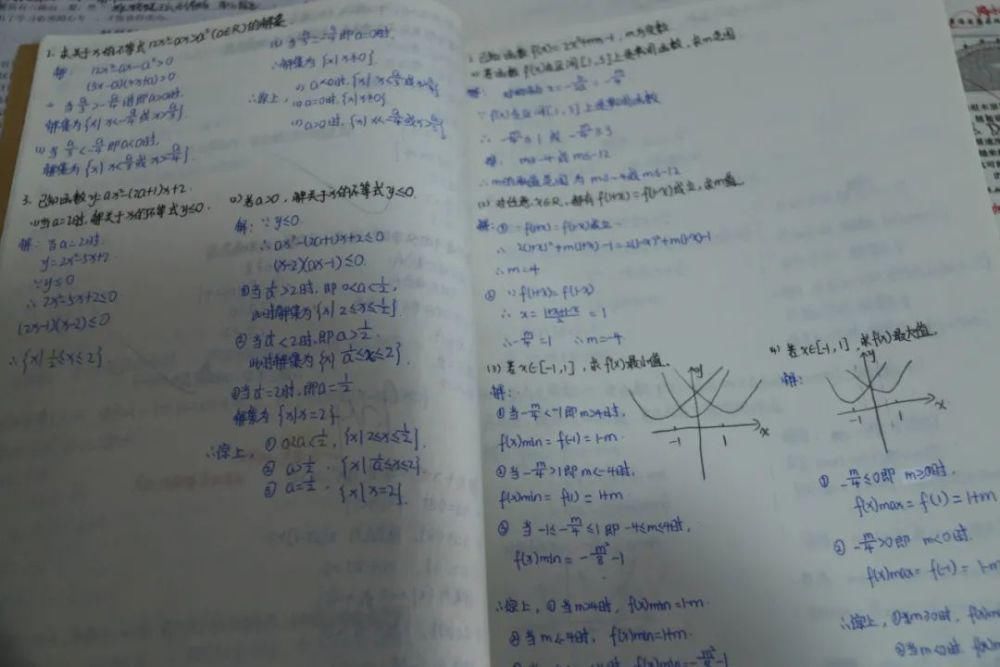 2. 求关于x的不等式12x²-ax>a²(a∈R)的解集.
解: 12x²-ax-a²>0
(3x-a)(4x+a)>0
解集为{x|x<-a/4或x>a/3}
(2) 当a/3<-a/4即a<0时,
解集为{x|x<a/3或x>-a/4}
(3) 当a/3=-a/4即a=0时,
∴解集为{x|x≠0}.
∴综上,
a=0时,{x|x≠0}
3. 已知函数y=ax²-(2a+1)x+2.
(1)当a=2时,解关于x的不等式y≤0.
解: 当a=2时
y=2x²-5x+2
∵y≤0
∴2x²-5x+2≤0
(2x-1)(x-2)≤0
∴{x|1/2≤x≤2}
(2)若a>0,解关于x的不等式y≤0.
解: ∵y≤0
∴ax²-(2a+1)x+2≤0
(x-2)(ax-1)≤0.
①当1/a>2时,即0<a<1/2,
此时解集为{x|2≤x≤1/a}.
②当1/a<2时,即a>1/2.
此时解集为{x|1/a≤x≤2}.
③当1/a=2时,即a=1/2.
解集为{x|x=2}.
∴综上, ① 0<a<1/2, {x|2≤x≤1/a}.
② a>1/2. {x|1/a≤x≤2}
③ a=1/2. {x|x=2}.
已知函数f(x)=2x²+mx-1, m为实数
∴ -m/4≤1或-m/4≥3
m≥-4或m≤-12
∴m的取值范围为m≥-4或m≤-12
(2) 对任意x∈R,都有f(1+x)=f(1-x)成立,求m值.
解: ① ∵f(1+x)=f(1-x)成立
∴ 2(1+x)²+m(1+x)-1=2(1-x)²+m(1-x)-1
∴m=4
② ∵f(1+x)=f(1-x)
∴ x=(1+x+1-x)/2=1
∴-m/4=1 ∴m=-4
(3) 若x∈[-1,1],求f(x)最小值.
解:
①当-m/4<-1即m>4时,
f(x)min=f(-1)=1-m.
②当-m/4>1即m<-4时.
f(x)min=f(1)=1+m
③ 当-1≤-m/4≤1即-4≤m≤4时,
f(x)min=-m²/8-1
∴综上,①当m>4时, f(x)min=1-m.
②当m<-4时, f(x)min=1+m.
f(x)min=-m²/8-1
y
-1
1
x
(4) 若x∈[-1,1],求f(x)最大值.
解:
y
-1
1
x
① -m/4≤0即m≥0时.
f(x)max=f(1)=1+m
② -m/4>0即m<0时.
f(x)max=f(-1)=1-m
∴综上,①当m≥0时,
②当m<0时